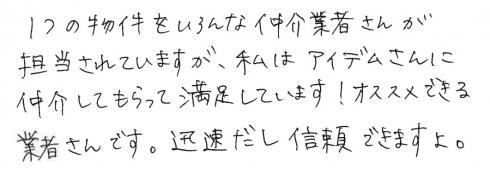 1つの物件をいろんな仲介業者さんが
担当されていますが、私はアイデムさんに
仲介してもらって満足しています！オススメできる
業者さんです。迅速だし信頼できますよ。